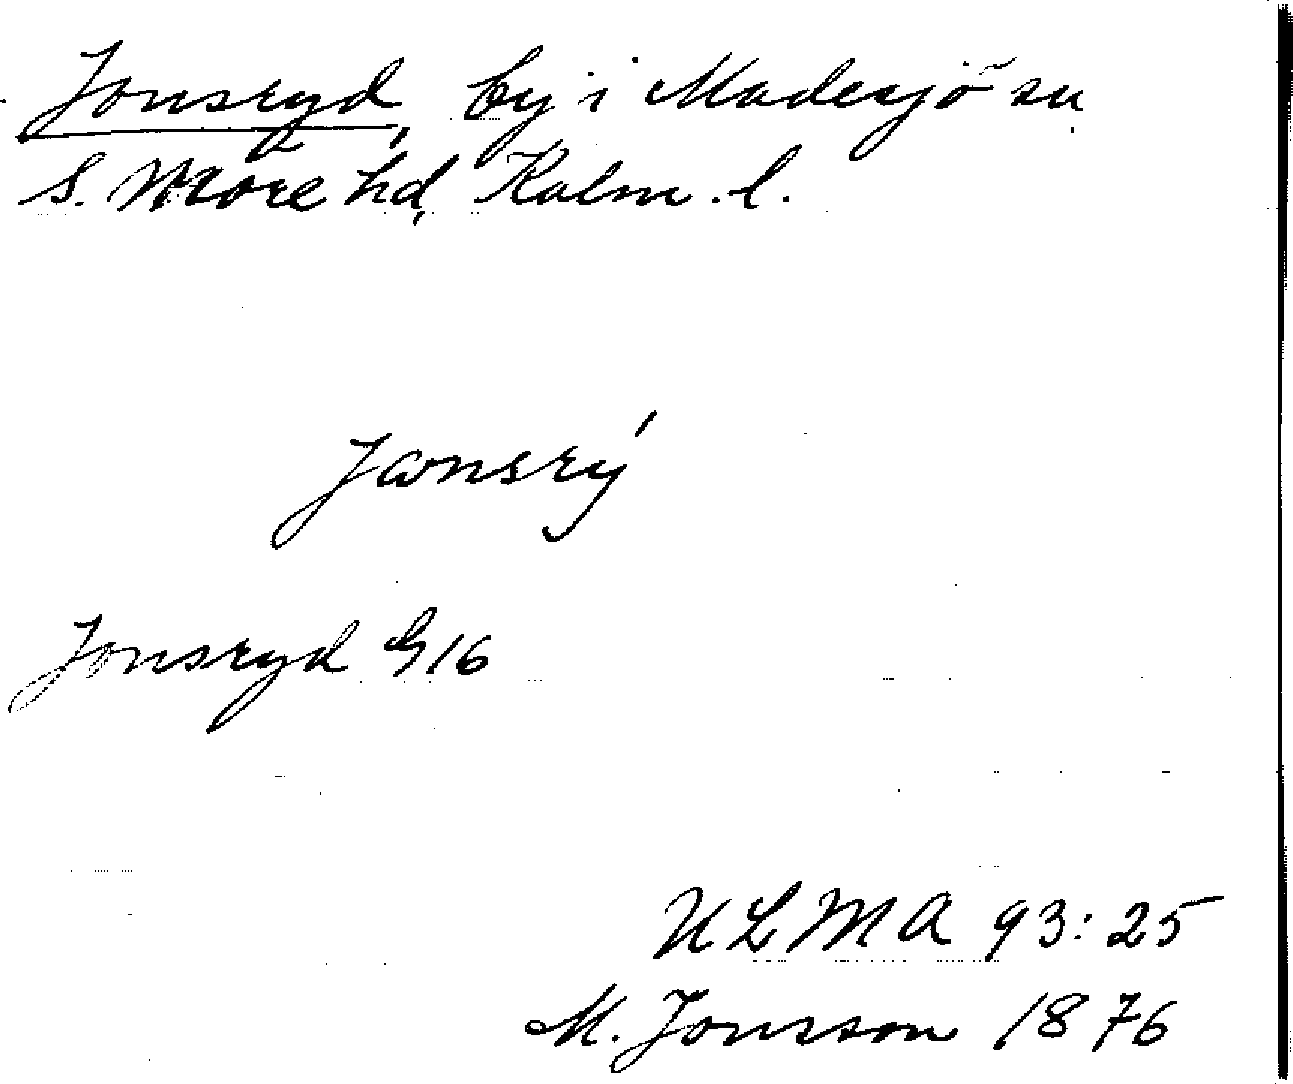 Jonsryd, by i Madesjö sn
S. Möre hd, Kalm. l.
Jonsrý
Jonsryd G16
ULMA 93:25
M. Jonsson 1876